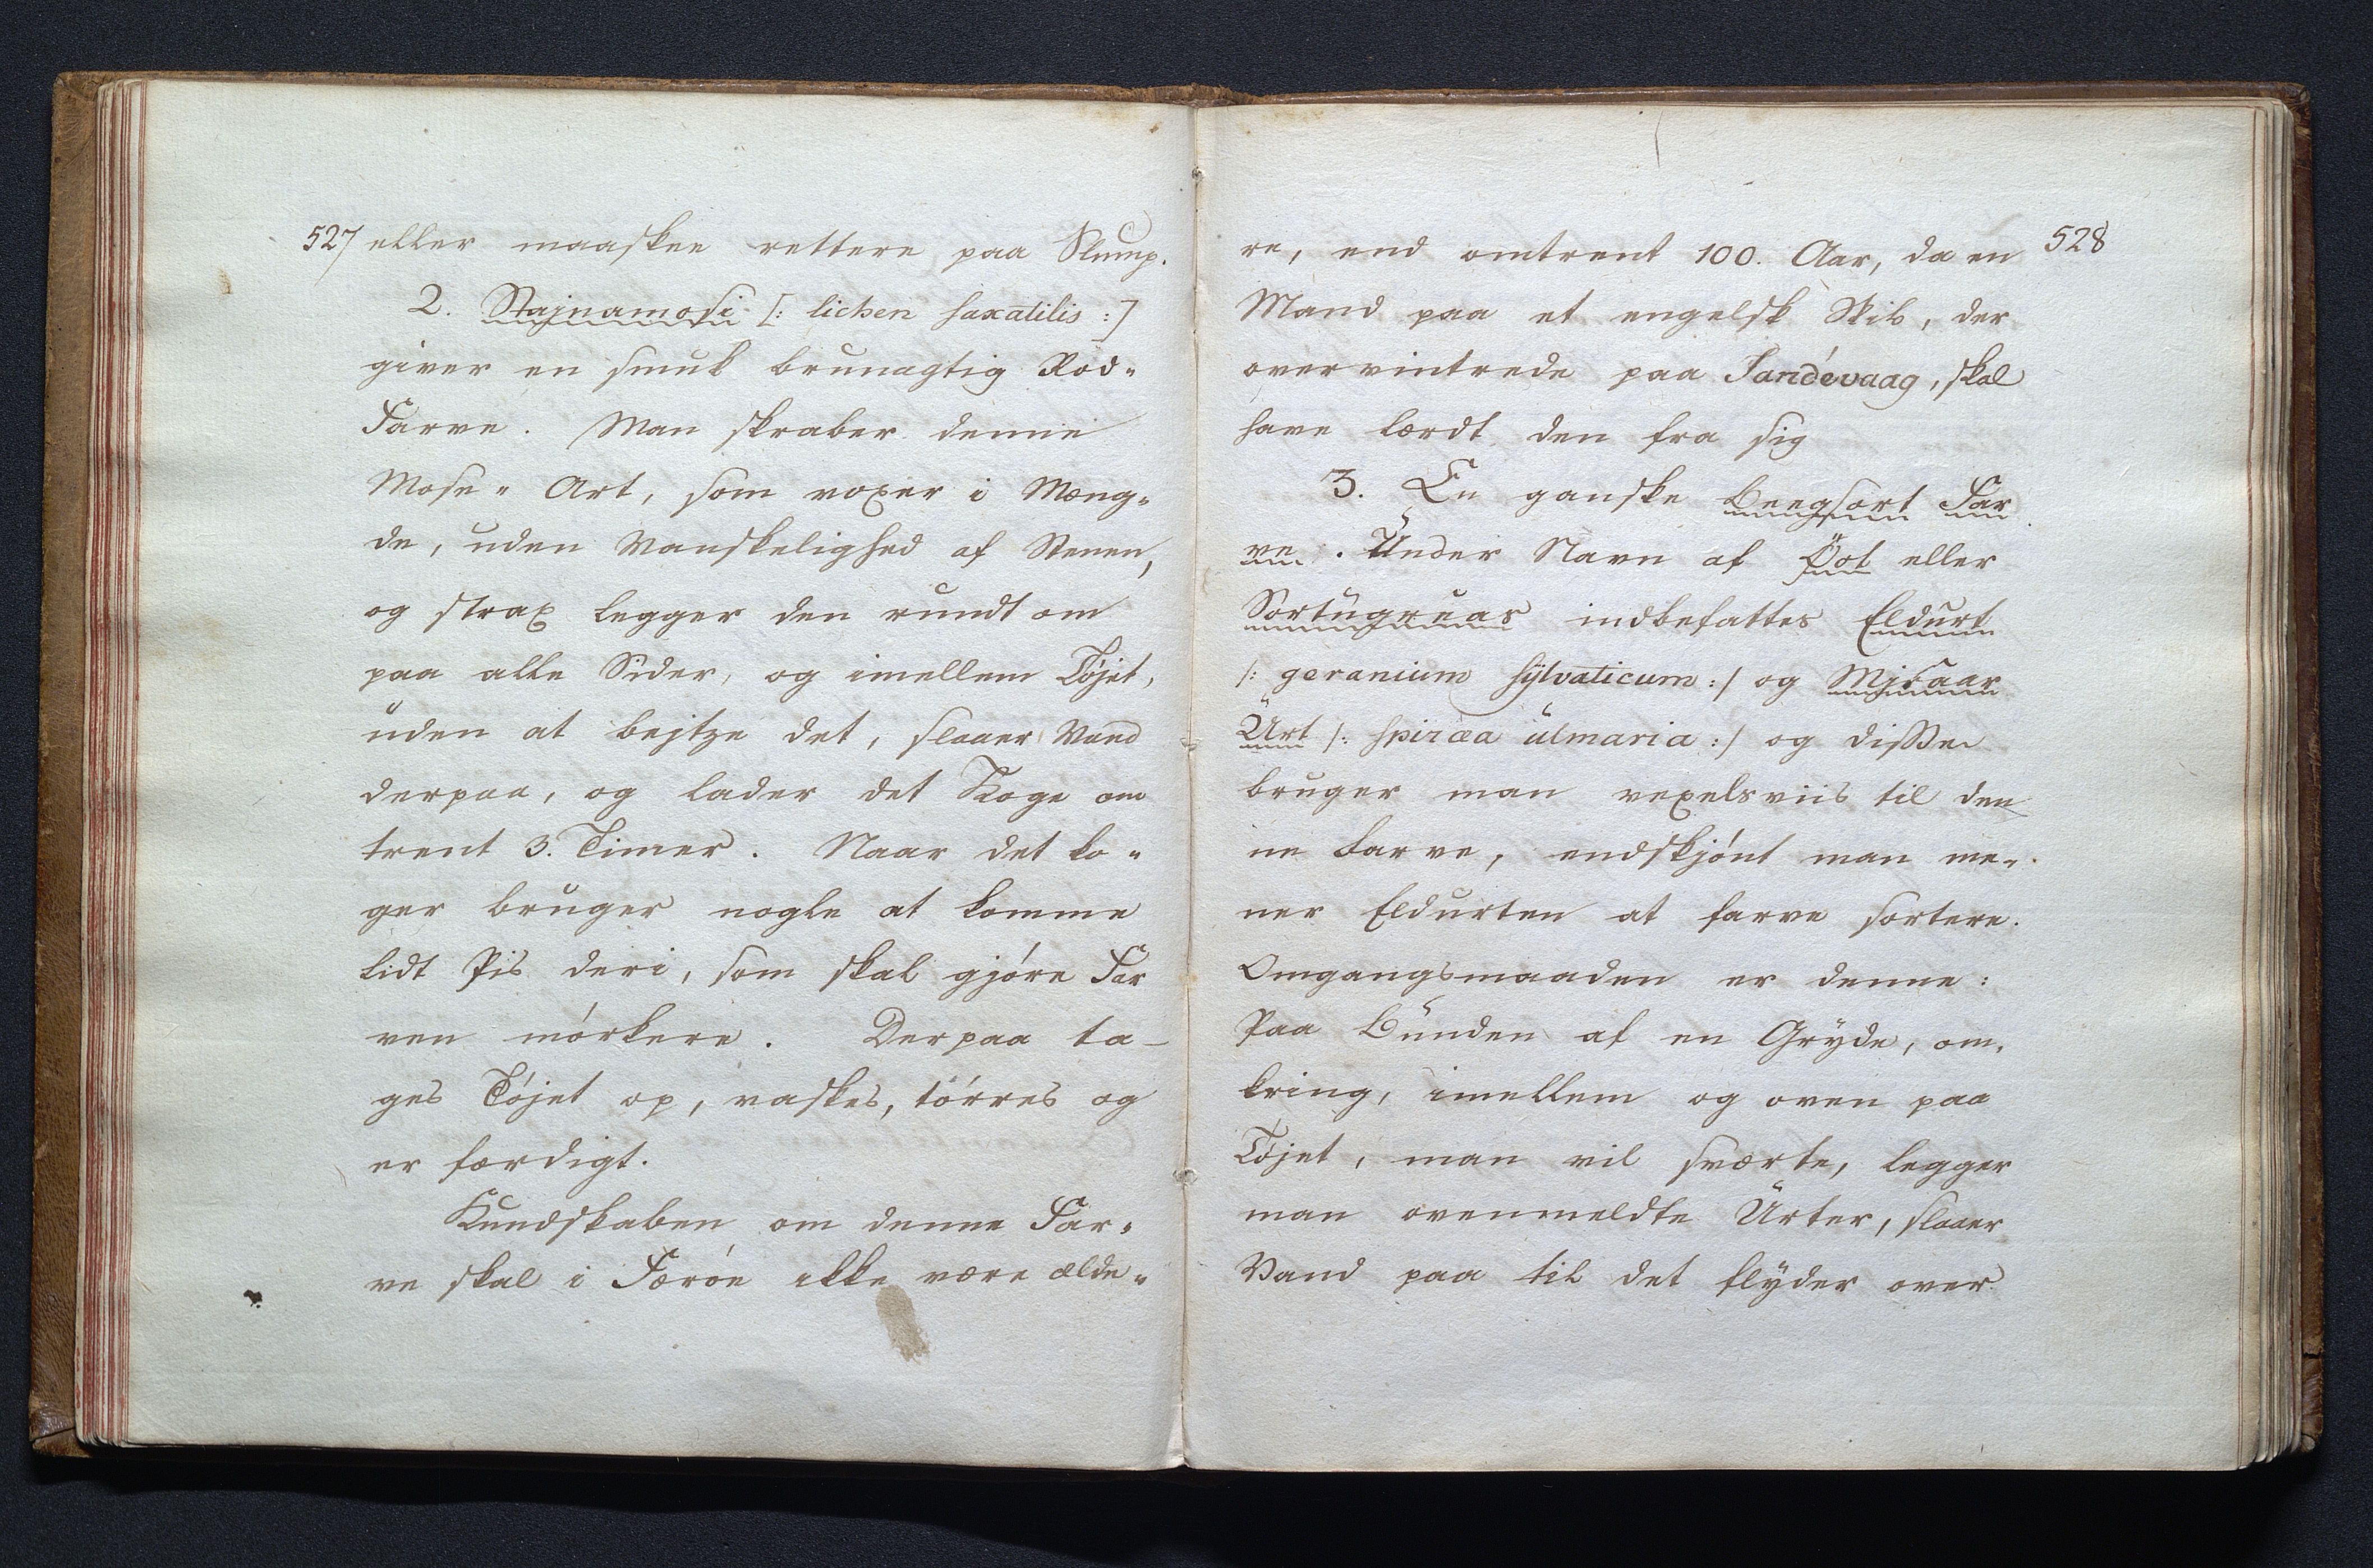 527 eller maaskee rettere paa Slump.
2. Stajnamosi [: lichen saxatilis :]
giver en smuk brunagtig Rød-
Farve. Man skraber denne
Mose-Art, som voxer i Mæng-
de, uden Vanskelighed af Stenen,
og strax legger den rundt om
paa alle Sider, og imellem Tøjet,
uden at bejtze det, slaaer Vand
derpaa, og lader det Koge om
trent 3. Timer. Naar det ko-
ger bruger nogle at komme
lidt Pis deri, som skal gjøre Far
ven mørkere. Derpaa ta-
ges Tøjet op, vaskes, tørres og
er færdigt.
Kundskaben om denne Far-
ve skal i Færøe ikke være ælde-
528
re, end omtrent 100. Aar, da en
Mand paa et engelsk Skib, der
overvintrede paa Sandevaag, skal
have lærdt den fra sig
3. En ganske Beegsort Far
ve. Under Navn af eller
Sortugruas indbefattes Eldurt
/: geranium sylvaticum :/ og Mjaaar
Urt /: spiræa ulmaria :/ og disse
bruger man vexelsviis til den
ne Farve, endskjønt man me-
ner Eldurten at farve sortere.
Omgangsmaaden er denne:
Paa Bunden af en Gryde, om-
kring, imellem og oven paa
Tøjet, man vil sværte, legger
man ovenmeldte Urter, slaaer
Vand paa til det flyder over